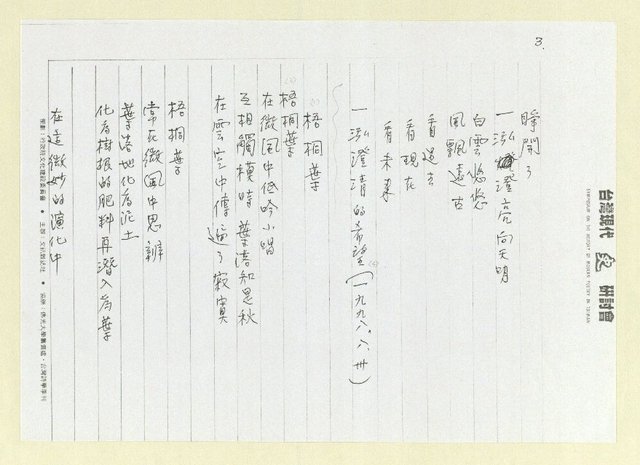 3.
台灣現代 史 研討會
睜開了
一泓澄亮向天明
白雲悠悠
風飄遠古
看過去
看現在
看未來
一泓澄清的希望(一九九八、八、卅)
梧桐葉
梧桐葉
在微風中低吟小唱
互相觸摸時 葉落和是秋
在雲空中傳遍了寂寞
梧桐葉
常在微風中思辨
葉落地化為泥土
化為樹根的肥料再潛入為葉
在這微妙的演化中